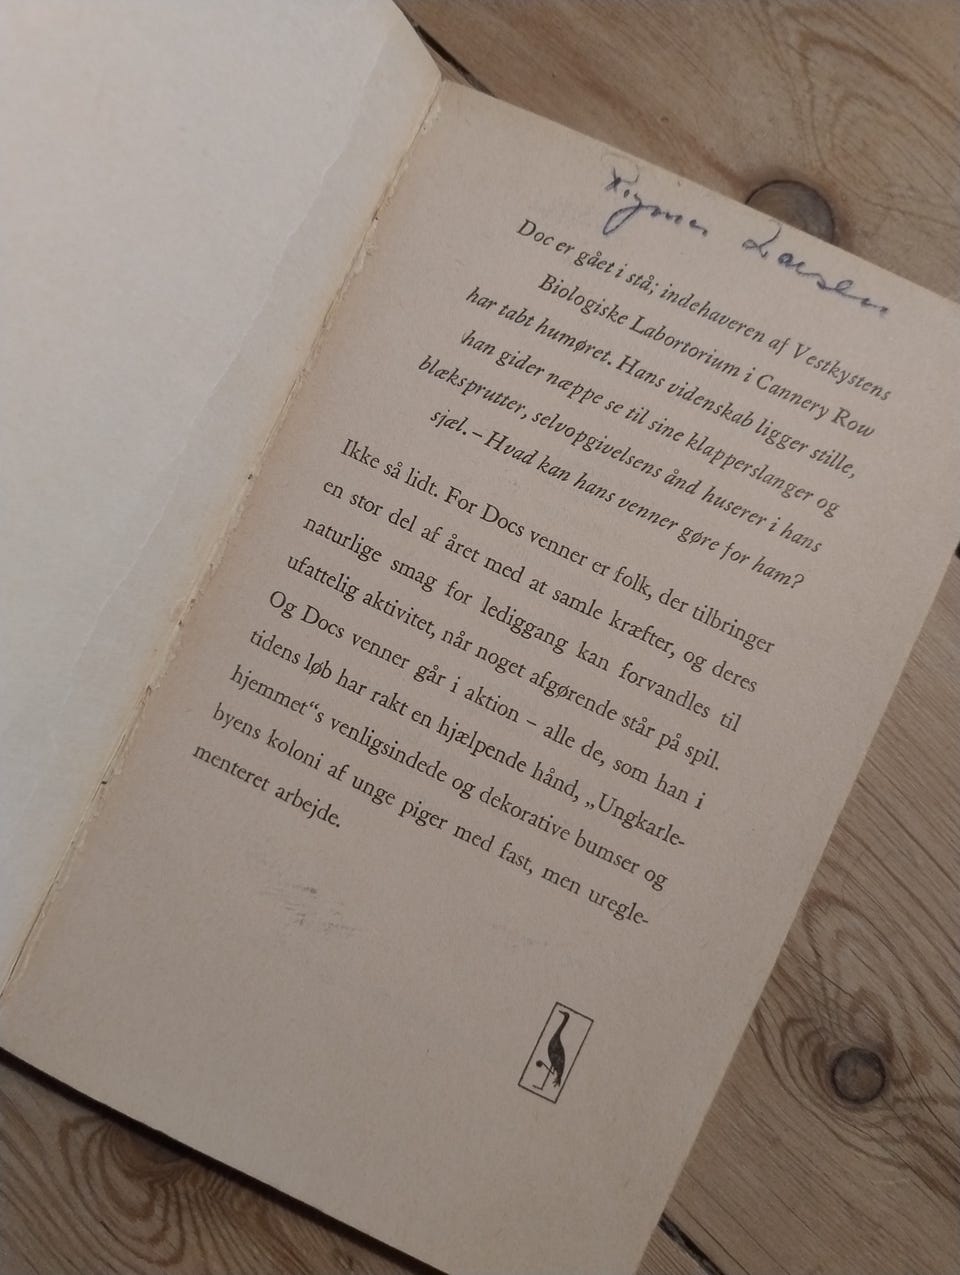 Larsen
Doc er gået i stå; indehaveren af Vestkystens
Biologiske Labortorium i Cannery Row
har tabt humøret. Hans videnskab ligger stille,
han gider næppe se til sine klapperslanger og
blæksprutter, selvopgivelsens ånd huserer i hans
sjæl. – Hvad kan hans venner gøre for ham?
Ikke så lidt. For Docs venner er folk, der tilbringer
en stor del af året med at samle kræfter, og deres
naturlige smag for lediggang kan forvandles til
ufattelig aktivitet, når noget afgørende står på spil.
Og Docs venner går i aktion – alle de, som han i
tidens løb har rakt en hjælpende hånd, „Ungkarle-
hjemmet“s venligsindede og dekorative bumser og
byens koloni af unge piger med fast, men uregle-
menteret arbejde.